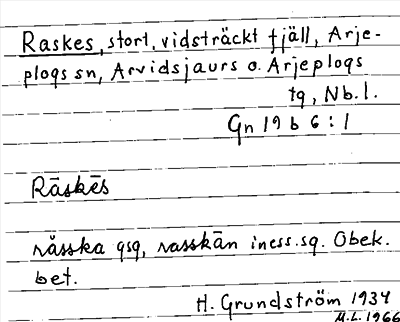 Raskes, stort, vidsträckt fjäll, Arje-
plogs sn, Arvidsjaurs o. Arjeplogs
tg, Nb.l.
Gn 19 b 6:1
Rāskēs
råsska gsg, rasskān iness.sg. Obek.
bet.
H. Grundström 1934
M.L. 1966